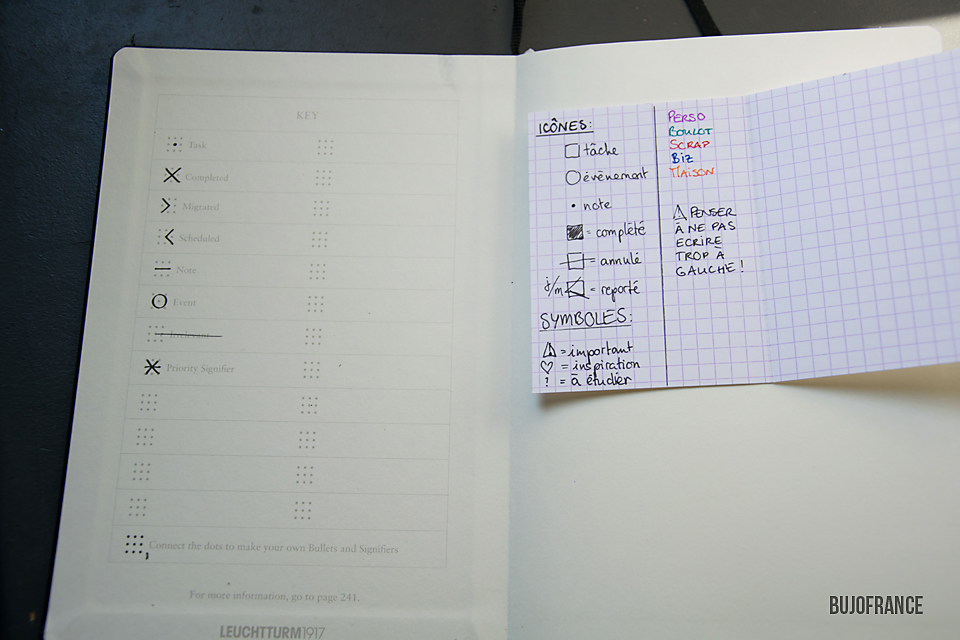 KEY
Task
Completed
Migrated
Scheduled
Note
Event
Irrelevant
Priority Signifier
Connect the dots to make your own Bullets and Signifiers
For more information, go to page 241.
LEUCHTTURM1917
ICÔNES:
tâche
évènement
• note
= complété
= annulé
j/m = reporté
SYMBOLES:
= important
♡ = inspiration
! = à étudier
PERSO
BOULOT
SCRAP
BIZ
MAISON
⚠ PENSER
À NE PAS
ECRIRE
TROP À
GAUCHE !
BUJOFRANCE